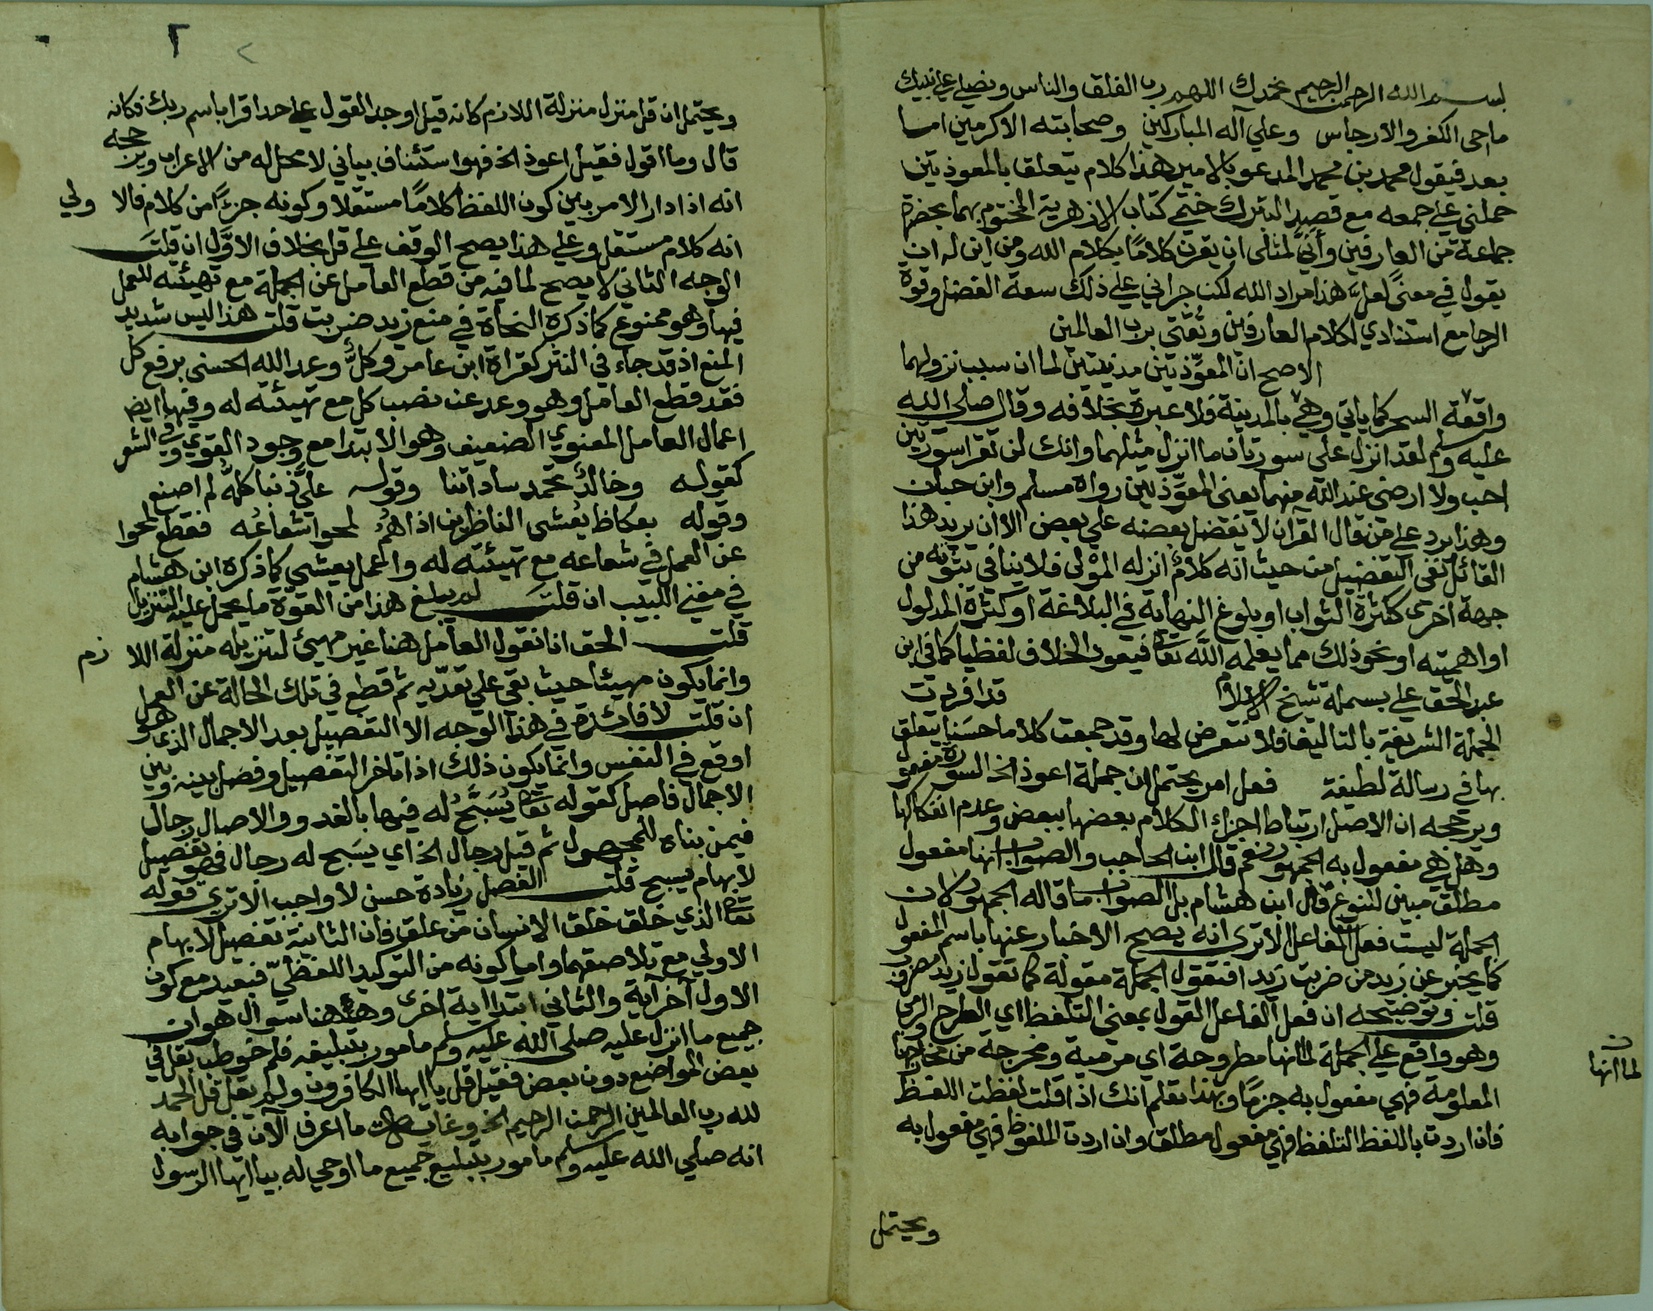 بسم الله الرحمن الرحيم نحمدك اللهم رب الفلق والناس ونصلي على نبيك
ماحي الكفر والارجاس وعلي آله المباركين وصحابته الاكرمين اما
بعد فيقول محمد بن محمد المدعو بالامير هذا كلام يتعلق بالمعوذتين
حملني على جمعه مع قصد التبرك ختم كتاب الازهرية المختوم بهما بحضرة
جماعة من العارفين وأنّى لمثلى ان يقرن كلامًا بكلام الله ومن اين له ان
يقول في معنًى لعلّ هذا مراد الله لكن جراني على ذلك سعة الفضل وقوة
الرجا مع استنادي لكلام العارفين وثقتى برب العالمين
الاصح ان المعوّذتين مدنيتين لما ان سبب نزولهما
واقعة السحر كما ياتي وهي بالمدينة فلا عبرة بخلافه وقال صلى الله
عليه وسلم لقد انزل علي سورتان ما انزل مثلهما وانك لن تقرا سورتين
احب ولا ارضى عند الله منهما يعنى المعوّذتين رواه مسلم وابن حبان
وهذا يرد على من قال القرآن لا يفضل بعضه على بعض الا ان يريد هذا
القائل نفى التفضيل من حيث انه كلام انزله المولى فلا ينافي ثبوته من
جهة اخرى ككثرة الثواب او بلوغ النهاية في البلاغة او كثرة المدلول
او اهميته او نحو ذلك مما يعلمه الله تعا فيعود الخلاف لفظيا كما في ابن
عبد الحق على بسملة شيخ الاسلام قد افردت
الجملة الشريفة بالتاليف فلا نتعرض لها وقد جمعت كلاما حسنا يتعلق
بها في رسالة لطيفة فعل امر يحتمل ان جملة اعوذ الخ السورة مفعول
ويرجحه ان الاصل ارتباط اجزاء الكلام بعضها ببعض وعدم انفكاكها
وهل هي مفعول به الجمهور نعم قال ابن الحاجب والصواب انها مفعول
مطلق مبين للنوع قال ابن هشام بل الصواب ما قاله الجمهور لان
الجملة ليست فعل الفاعل الا ترى انه يصح الاخبار عنها باسم المفعول
كما يخبر عن زيد من ضربت زيدا فتقول الجملة مقولة كما تقول زيد مضروب
قلت وتوضيحه ان فعل الفاعل القول بمعنى التلفظ اي الطرح الرمي
وهو واقع على الجملة لما انها مطروحة اي مرمية ومخرجة من مخارجها
لما انها
المعلومة فهي مفعول به جزمًا وبهذا تعلم انك اذا قلت لفظت اللفظ
فاذا اردت باللفظ التلفظ فهي مفعول مطلق وان اردت الملفوظ فهي مفعول به
ويحتمل
٢
ويحتمل ان قل منزل منزلة اللازم كانه قيل اوجد القول على حد اقرا باسم ربك فكانه
قال وما اقول فقيل اعوذ الخ فهو استئناف بياني لا محل له من الاعراب ويرجحه
انه اذا دار الامر بين كون اللفظ كلامًا مستقلا وكونه جزءًا من كلام فالاولي
انه كلام مستقل وعلى هذا يصح الوقف على قل بخلاف الاوّل ان قلت
الوجه الثاني لا يصح لما فيه من قطع العامل عن الجملة مع تهيئه للعمل
فيها وهو ممنوع كما ذكره النحاة في منع زيد ضربت قلت هذا ليس شديد
المنع اذ قد جاء في النثر كقراة ابن عامر وكلٌّ وعد الله الحسنى برفع كل
فقد قطع العامل وهو وعد عن نصب كل مع تهيئته له وفيها ايضا
اعمال العامل المعنوي الضعيف وهو الابتدا مع وجود القوي وفي الشعر
كقوله وخالدٌ تحمد ساداتنا وقوله عليّ ذنبا كله لم اصنع
وقوله بعكاظ يُعشى الناظرين اذا هم لمحوا شعاعُه فقطع لمحوا
عن العمل في شعاعه مع تهيئته له واعمل يعشى كما ذكره ابن هشام
في مغني اللبيب ان قلت لم يبلغ هذا من القوة ما يحمل عليه التنزيل
قلت الحق انا نقول العامل هنا غير مهيئ لتنزيله منزلة اللازم
وانما يكون مهيئا حيث بقى على تعدّيه ثم قطع في تلك الحالة عن العمل
ان قلت لا فائدة في هذا الوجه الا التفصيل بعد الاجمال الذي هو
اوقع في النفس وانما يكون ذلك اذا تاخر التفصيل وفصل بينه وبين
الاجمال فاصل كقوله تعا يُسَبَّحُ له فيها بالغدو والاصال رجال
فيمن بناه للمجهول ثم قيل رجال الخ اي يسبح له رجال فهو تفصيل
لابهام يسبح قلت الفصل زيادة حسن لا واجب الا ترى قوله
تعا الذي خلق خلق الانسان من علق فان الثانية تفصيل لابهام
الاولي مع تلاصقهما واما كونه من التوكيد اللفظيّ فبعيد مع كون
الاول آخر آية والثاني ابتدا اية اخرى وههنا سوال هو ان
جميع ما انزل عليه صلى الله عليه وسلم مامور بتبليغه فلم خوطب بقل في
بعض المواضع دون بعض فقيل قل يا ايها الكافرون ولم يقل قل الحمد
لله رب العالمين الرحمن الرحيم الخ وغاية ما اعرف الآن في جوابه
انه صلى الله عليه وسلم مامور بتبليغ جميع ما اوحي له بيا ايها الرسول